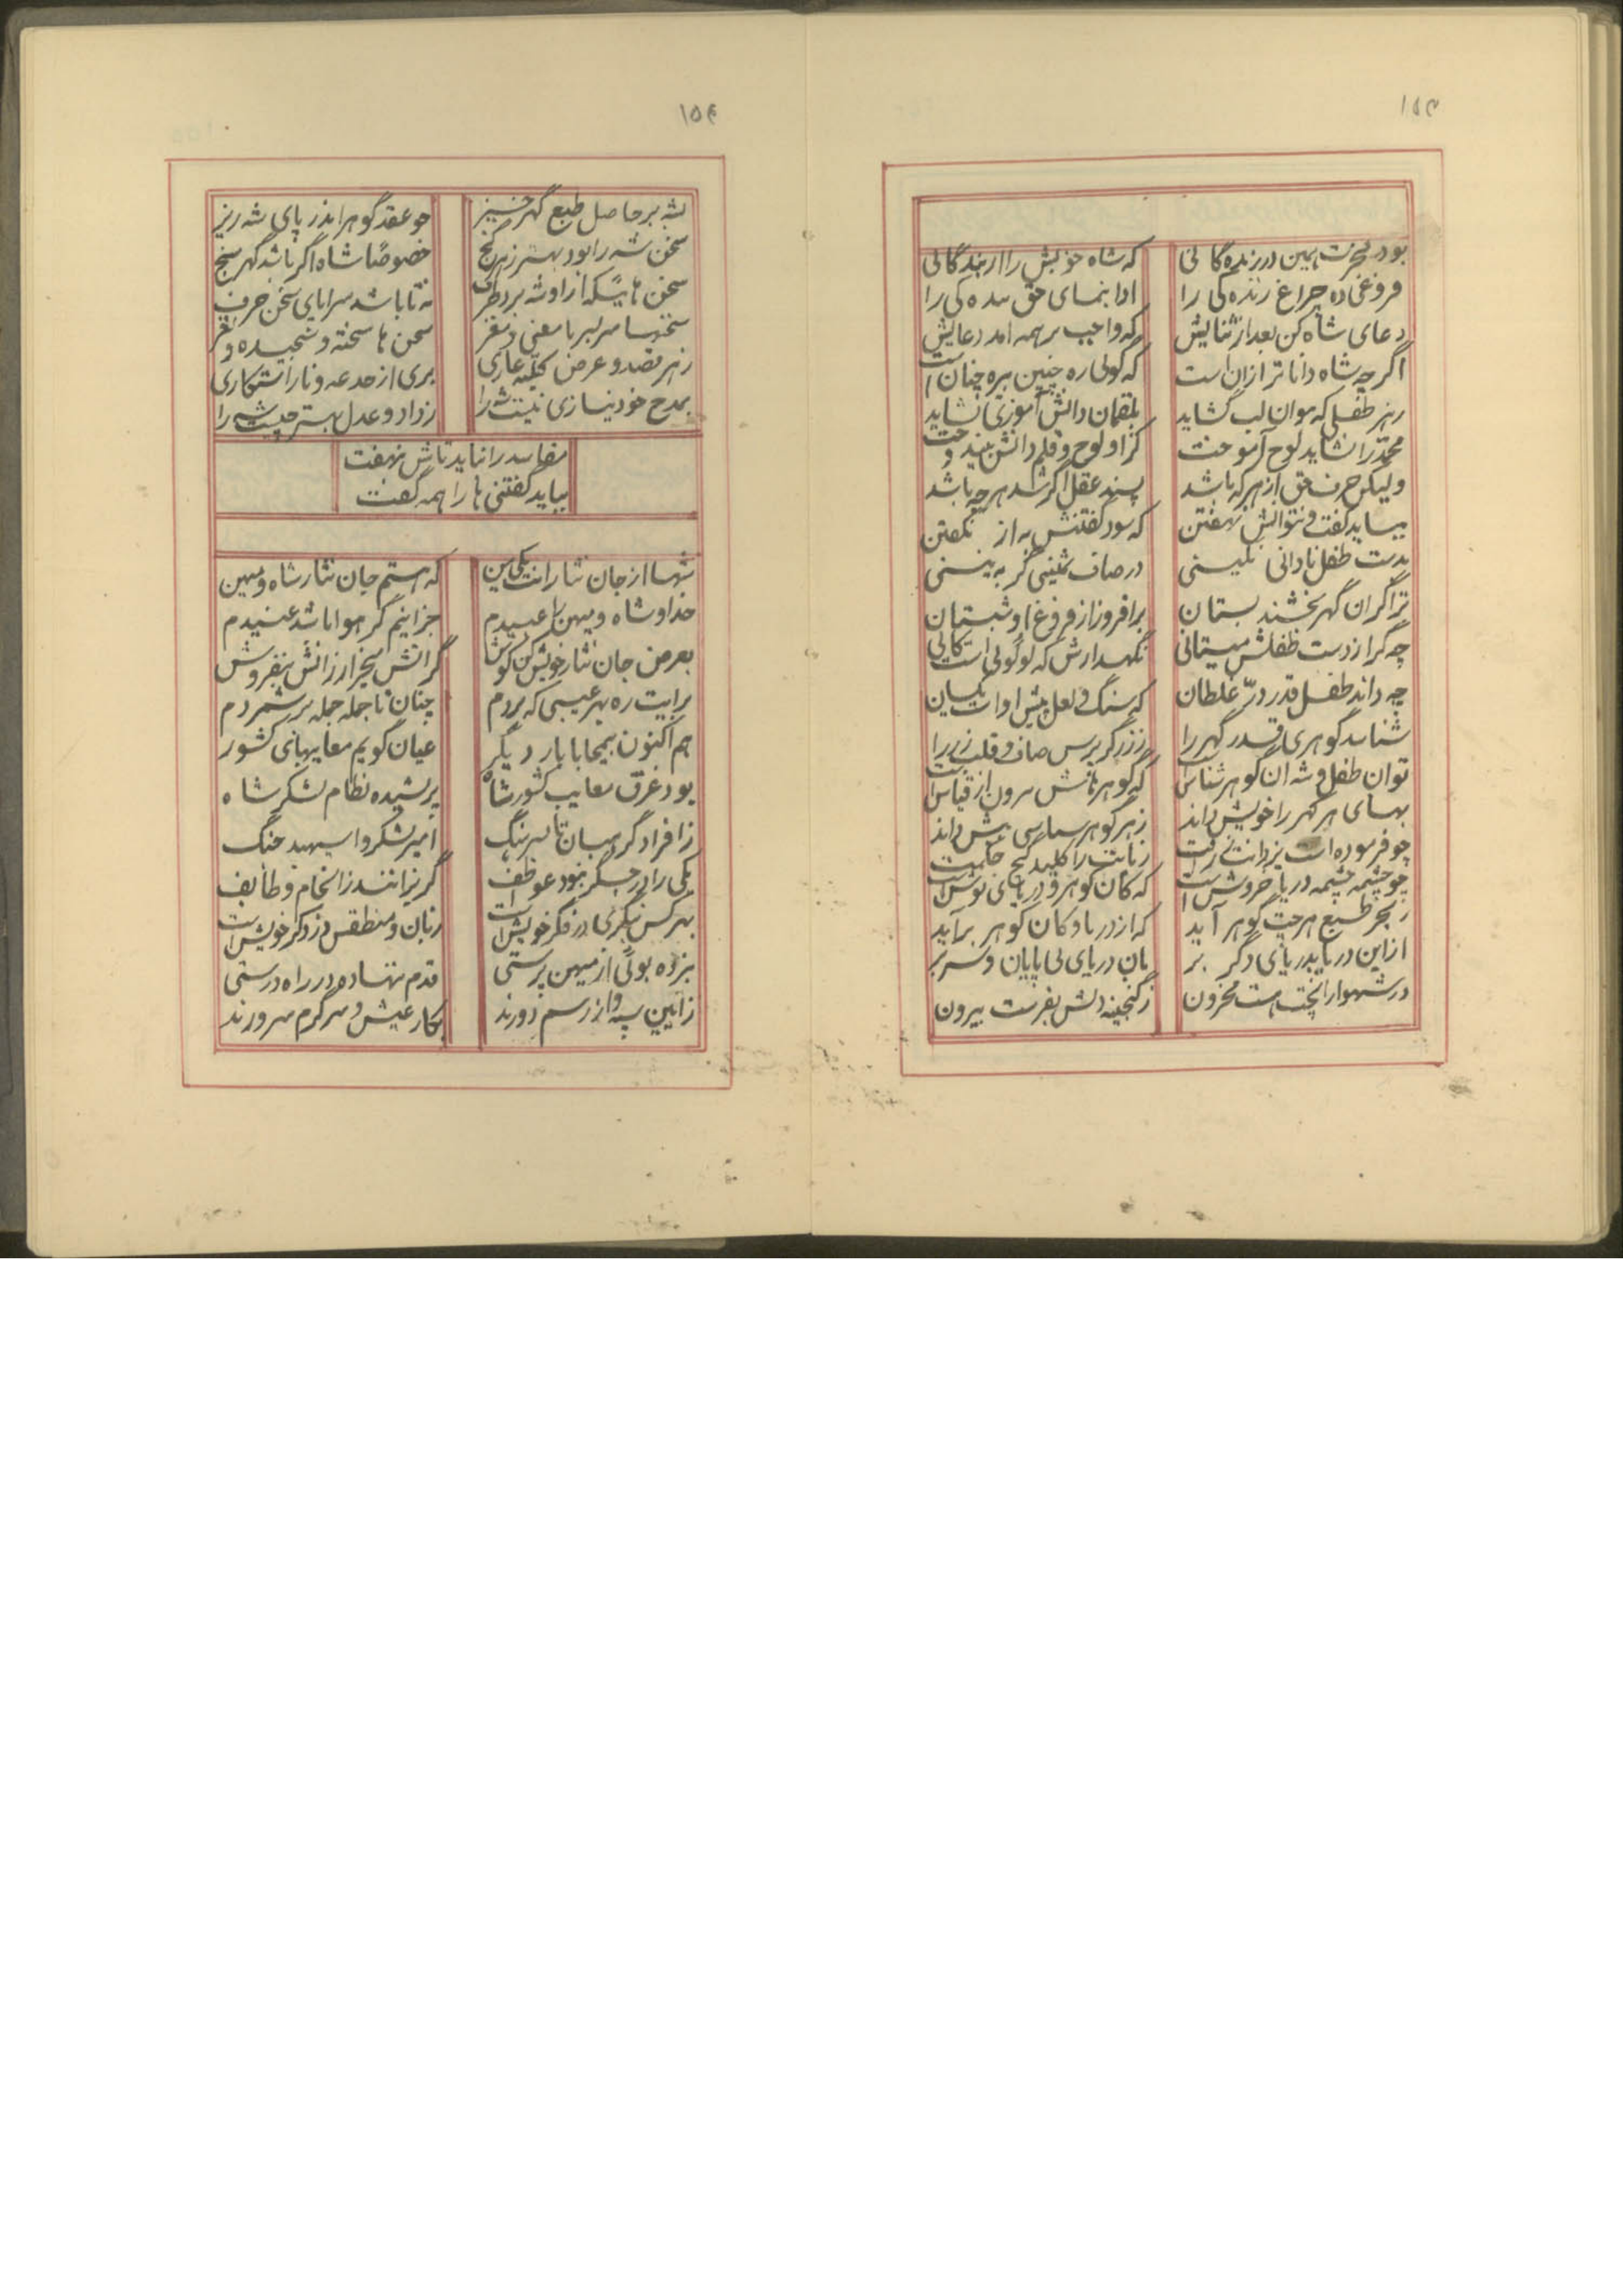 ۱۵۳
بود فخرت همین در زنده گانی
که شاه خویش را ارزنده گانی
فروغی ده چراغ زنده گی را
ادا بنمای حق بنده گی را
دعای شاه کن بعد از ثنایش
که واجب بر همه آمد دعایش
اگر چه شاه داناتر از آن است
که گوئی ره چنین بیره چنان است
ز هر طفلی که موان لب گشاید
بلقمان دانش آموزی نشاید
محمد را نشاید لوح آموخت
کز او لوح و قلم دانش بیندوخت
ولیکن حرف حق از هر که باشد
پسند عقل اگر شد هر چه باشد
بباید گفت و نتوانش نهفتن
که سود گفتنش به از نگفتن
بدست طفل نادانی نگینی
در صاف ثمینی گر به بینی
ترا گر آن گهر بخشند بستان
برافروز از فروغ او شبستان
چه گر از دست طفلش میستانی
نگهدارش که لولوئی است کانی
چه داند طفل قدر درّ غلطان
که سنگ و لعل پیش او است یکسان
شناسد گوهری قدر گهر را
ز زرگر پرس صاف و قلب زر را
تو آن طفل و شه آن گوهر شناس است
که گوهرهاش بیرون از قیاس است
بهای هر گهر را خویش داند
ز هر گوهر شناسی بیش داند
چو فرموده است یزدانت
زبانت را کلید گنج حکمت
چو چشمه چشمه دریا خروش است
که کان گوهر و دریای نوش است
ز بحر طبع هر چت گوهر آید
که از دریا و کان گوهر برآید
از این دریا بدریای دگر بر
بآن دریای بی پایان و سر بر
در شهوار را نجت هست مخزون
ز گنجینه دلش بفرست بیرون
۱۵۴
بشه بر حاصل طبع گهر خیز
چو عقد گوهر اندر پای شه ریز
سخن شه را بود بهتر ز هر گنج
خصوصا شاه اگر باشد گهر سنج
سخن هائیکه از او شه برد طرف
نه تا باشد سراپای سخن حرف
سخنها سر بسر با معنی و مغز
سخن ها سخته و سنجیده و نغز
ز هر قصد و غرض کلیه عاری
بری از خدعه و ناراستکاری
بمدح خود نیازی نیست شه را
ز داد و عدل بهتر چیست شه را
مفاسد را نباید تاش نهفت
بباید گفتنی ها را همه گفت
شها از جان نثارانت یکی من
که هستم جان نثار شاه و میهن
خدا و شاه و میهن را عبیدم
جز اینم گر هوا باشد عنیدم
بعرض جان نثار خویش کن گوش
گرانش بخر ارزانش بنفروش
برایت ره بهر عیبی که بردم
چنان تا جمله جمله بر شمردم
هم اکنون بیمحابا بار دیگر
عیان گویم معایبهای کشور
بود غرق معایب کشور شاه
پریشیده نظام لشکر شاه
ز افراد گروهبان تا سرهنگ
امیر لشکر و اسپهبد جنگ
یکی را در جگر نبود عواطف
گریزانند ز انجام وظایف
بهر کس بنگری در فکر خویش است
زبان و منطقش در ذکر خویش است
نبرده بوئی از میهن پرستی
قدم ننهاده در راه درستی
ز آیین سپه وز رسم دورند
بکار عیش و سرگرم سرورند